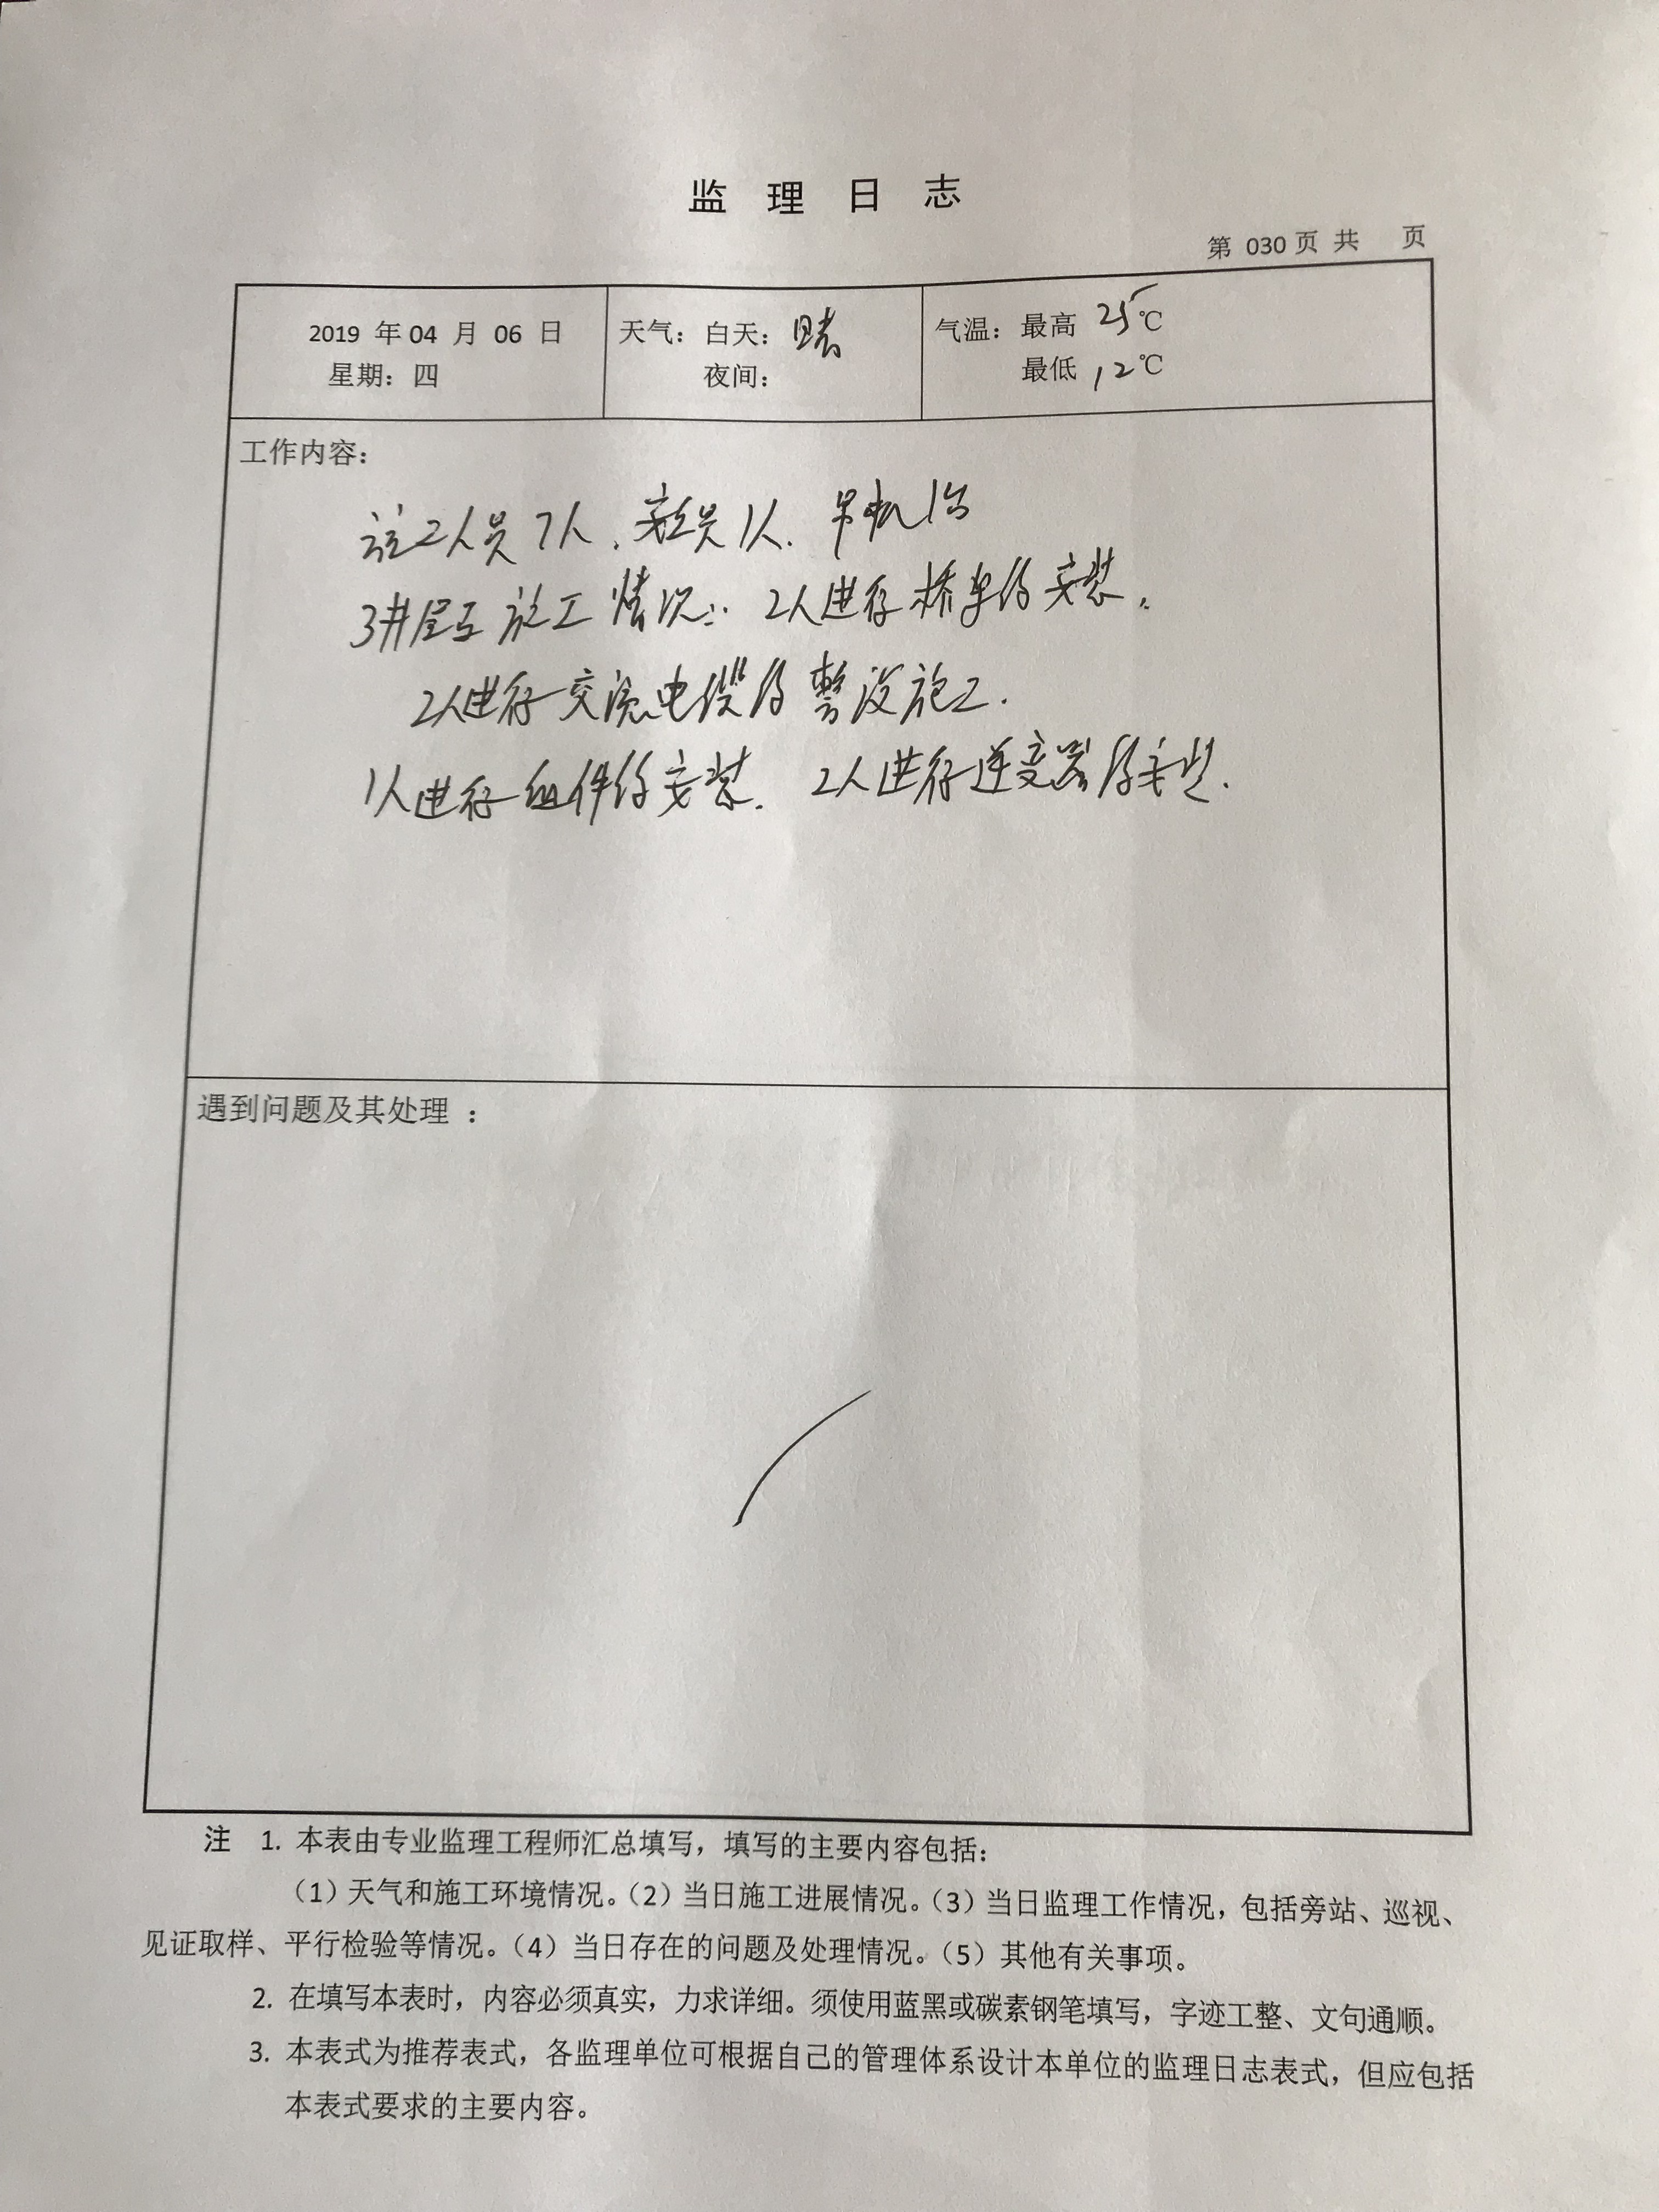 监 理 日 志
第 030 页 共 页
2019 年 04 月 06 日
星期：四
天气：白天：晴
夜间：
气温：最高 25℃
最低 12℃
工作内容：
施工人员7人、安全员1人、吊机1台
3#屋面施工情况：2人进行桥架的安装。
2人进行交流电缆的敷设施工.
1人进行组件的安装. 2人进行逆变器的安装.
遇到问题及其处理 ：
注 1. 本表由专业监理工程师汇总填写，填写的主要内容包括：
（1）天气和施工环境情况。（2）当日施工进展情况。（3）当日监理工作情况，包括旁站、巡视、
见证取样、平行检验等情况。（4）当日存在的问题及处理情况。（5）其他有关事项。
2. 在填写本表时，内容必须真实，力求详细。须使用蓝黑或碳素钢笔填写，字迹工整、文句通顺。
3. 本表式为推荐表式，各监理单位可根据自己的管理体系设计本单位的监理日志表式，但应包括
本表式要求的主要内容。